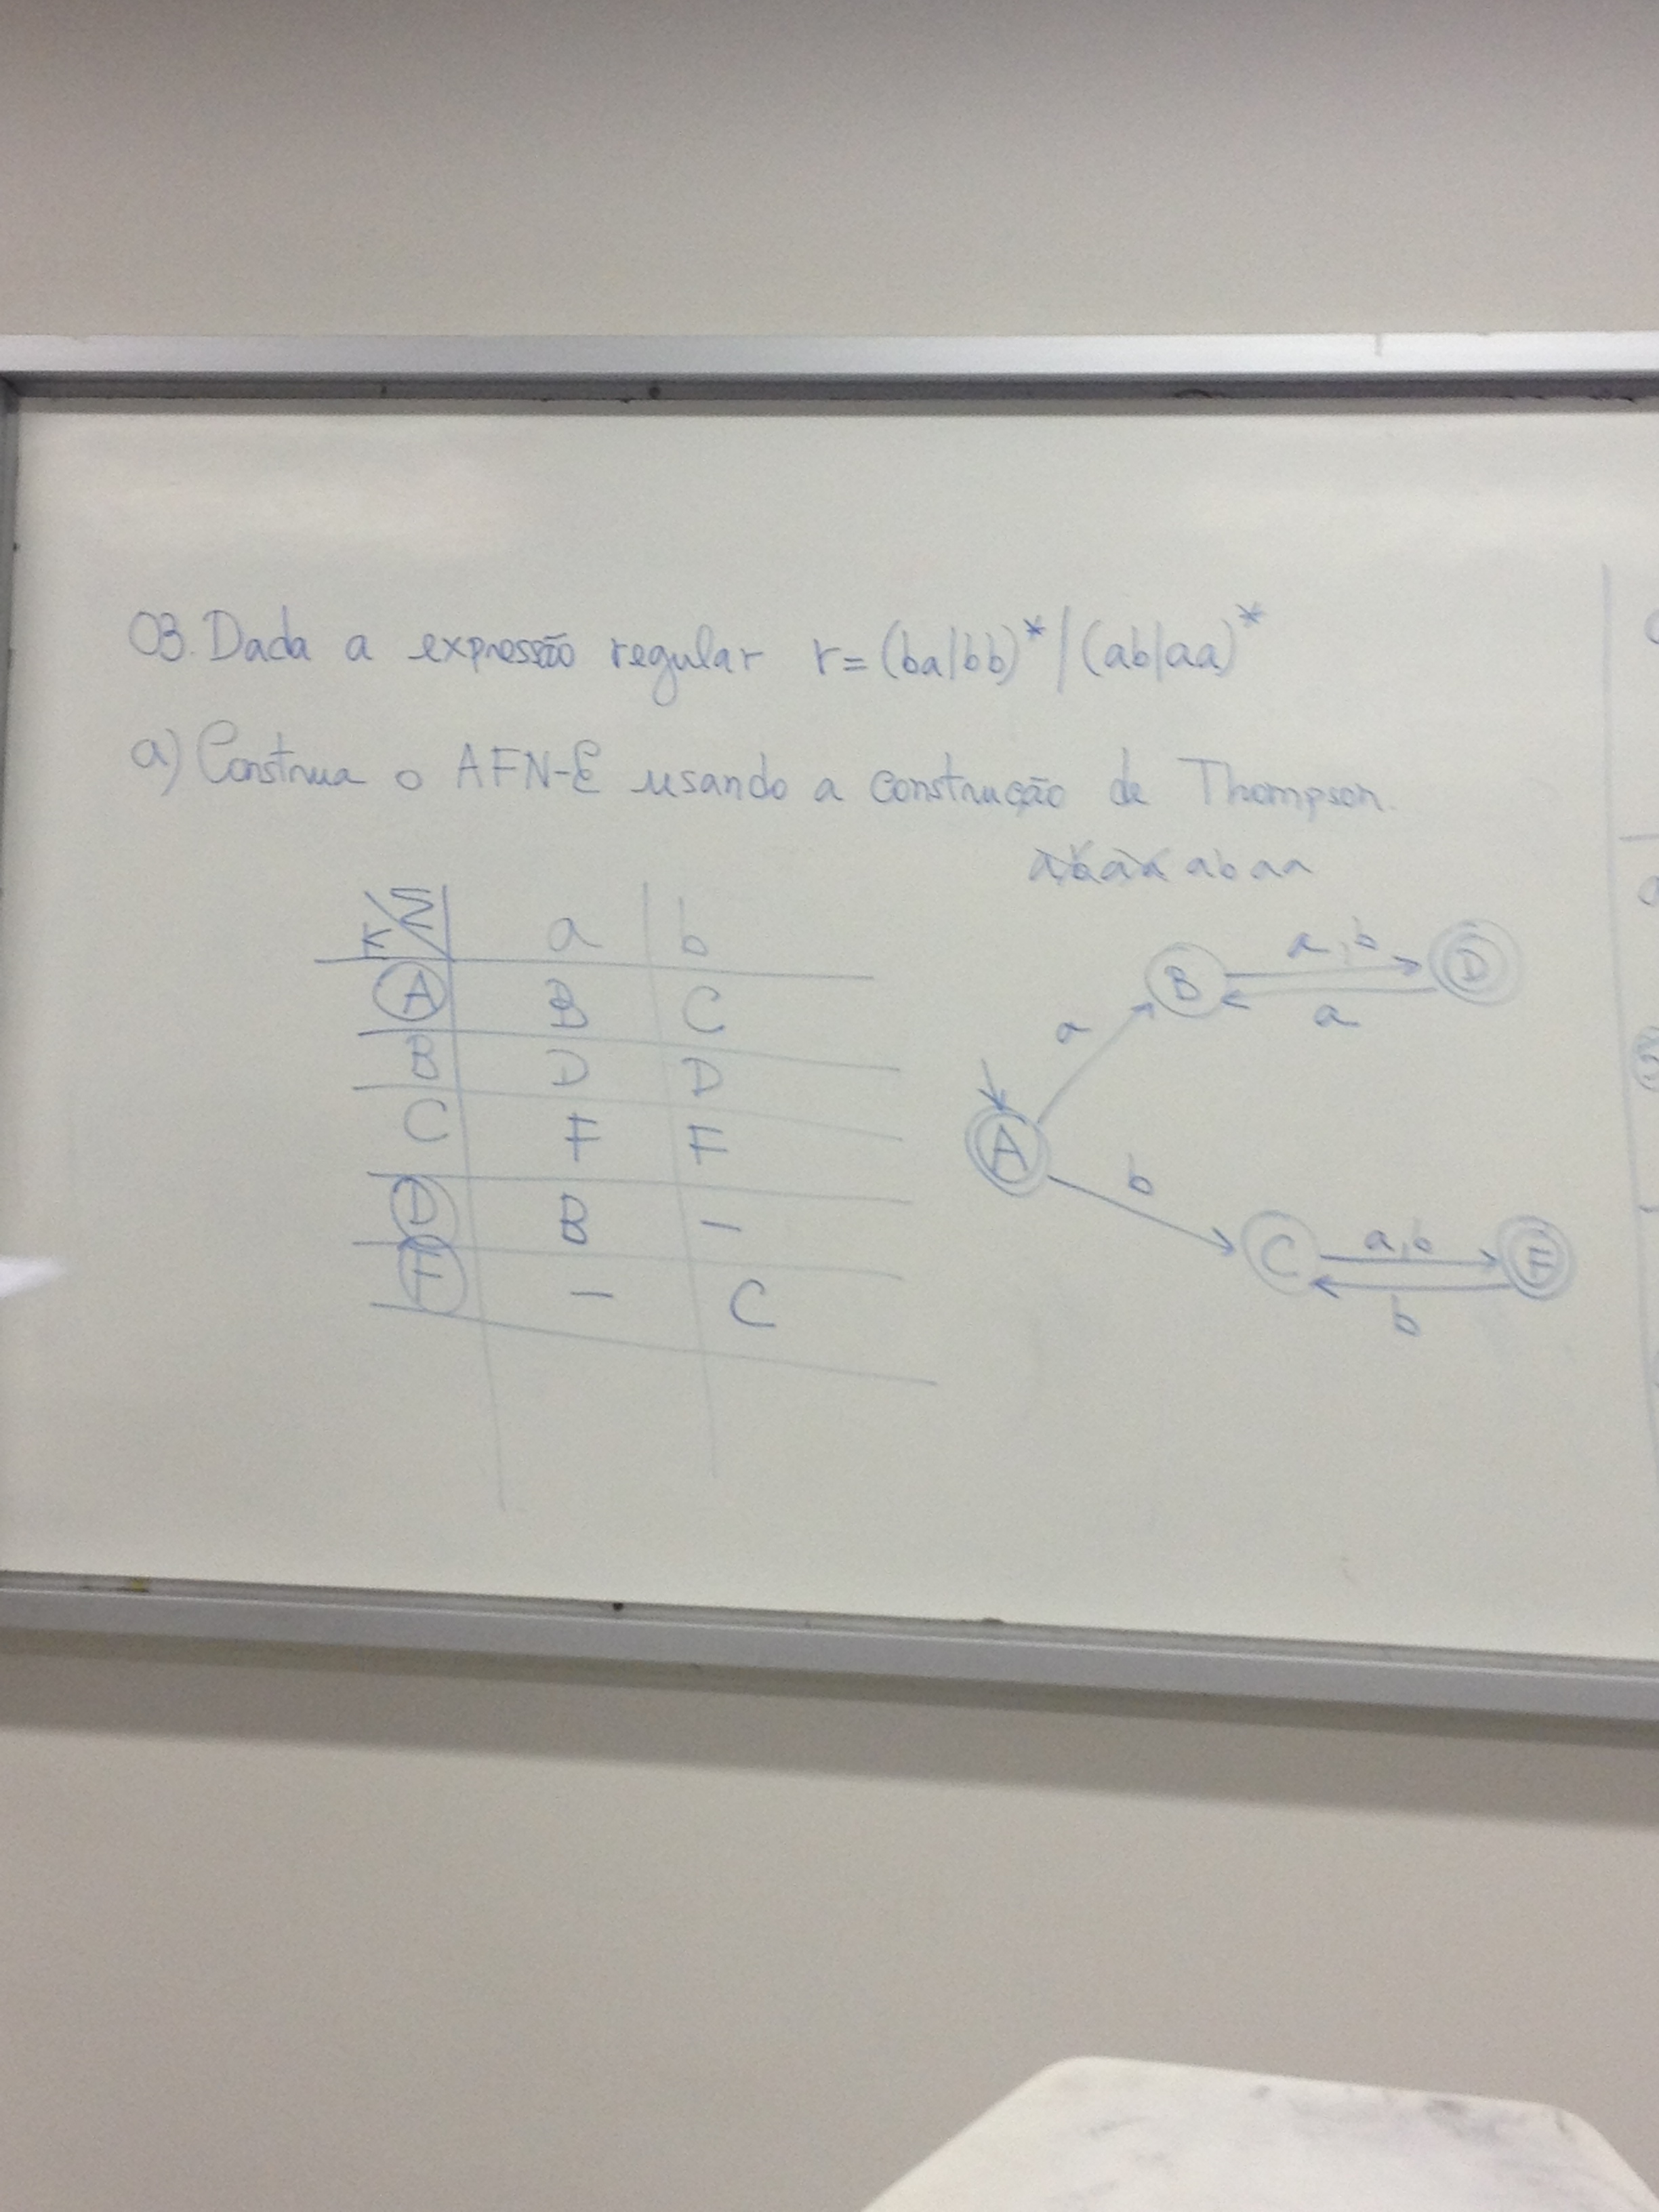 03. Dada a expressão regular r=(ba|bb)*|(ab|aa)*
a) Construa o AFN-Ɛ usando a construção de Thompson.
abaa abaa
K/Σ a b
A B C
B D D
C F F
D B -
F - C
B a,b D
a
a
A
b
C a,b F
b